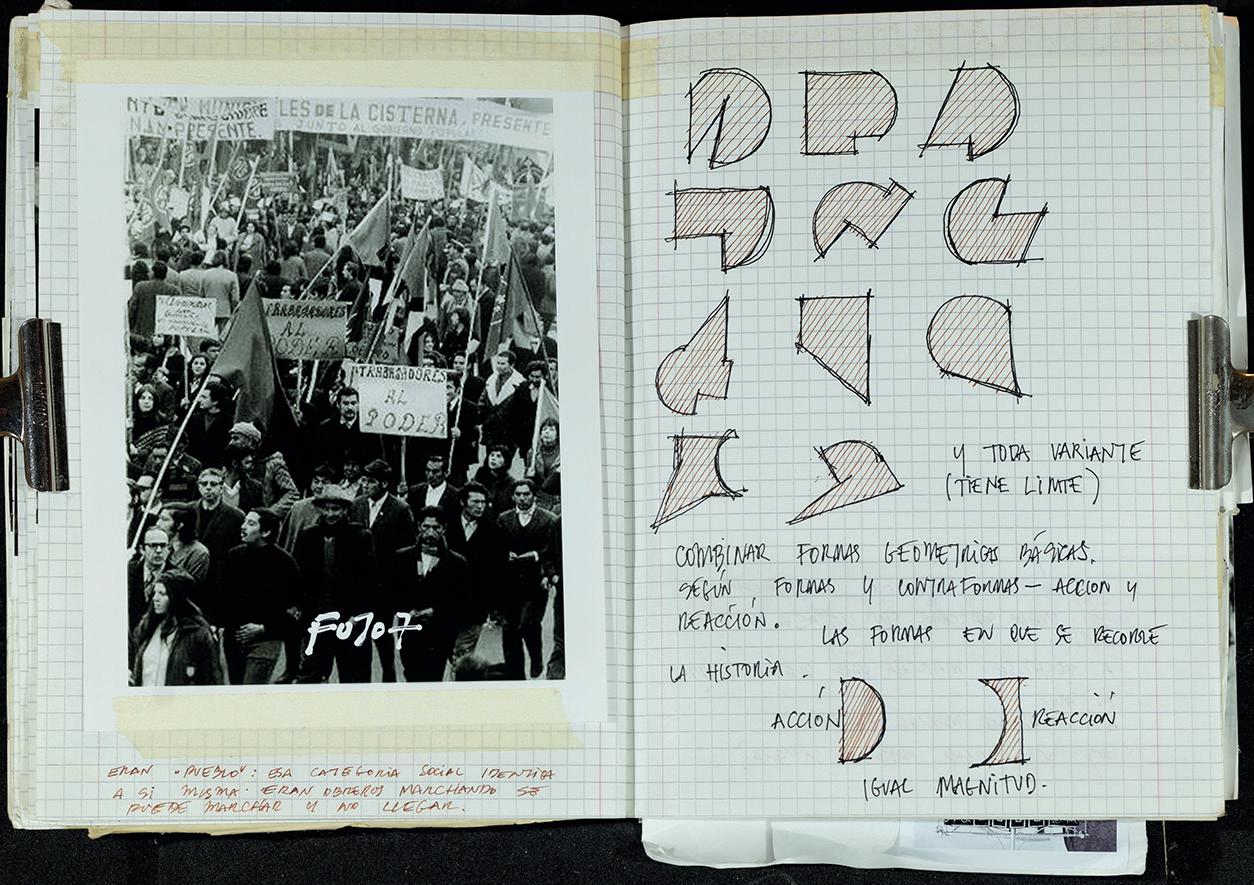 LES DE LA CISTERNA, PRESENTE
NAN-PRESENTE
JUNTO AL GOBIERNO POPULAR
TRABAJADORES
AL
TRABAJADORES
AL
PODER
FOTO 7
ERAN "PUEBLO": ESA CATEGORIA SOCIAL IDENTICA
A SI MISMA. ERAN OBREROS MARCHANDO SE
PUEDE MARCHAR Y NO LLEGAR.
Y TODA VARIANTE
(TIENE LIMITE)
COMBINAR FORMAS GEOMETRICAS BÁSICAS.
SEGÚN FORMAS Y CONTRAFORMAS — ACCION Y
REACCIÓN. LAS FORMAS EN QUE SE RECORRE
LA HISTORIA.
ACCIÓN
REACCIÓN
IGUAL MAGNITUD.